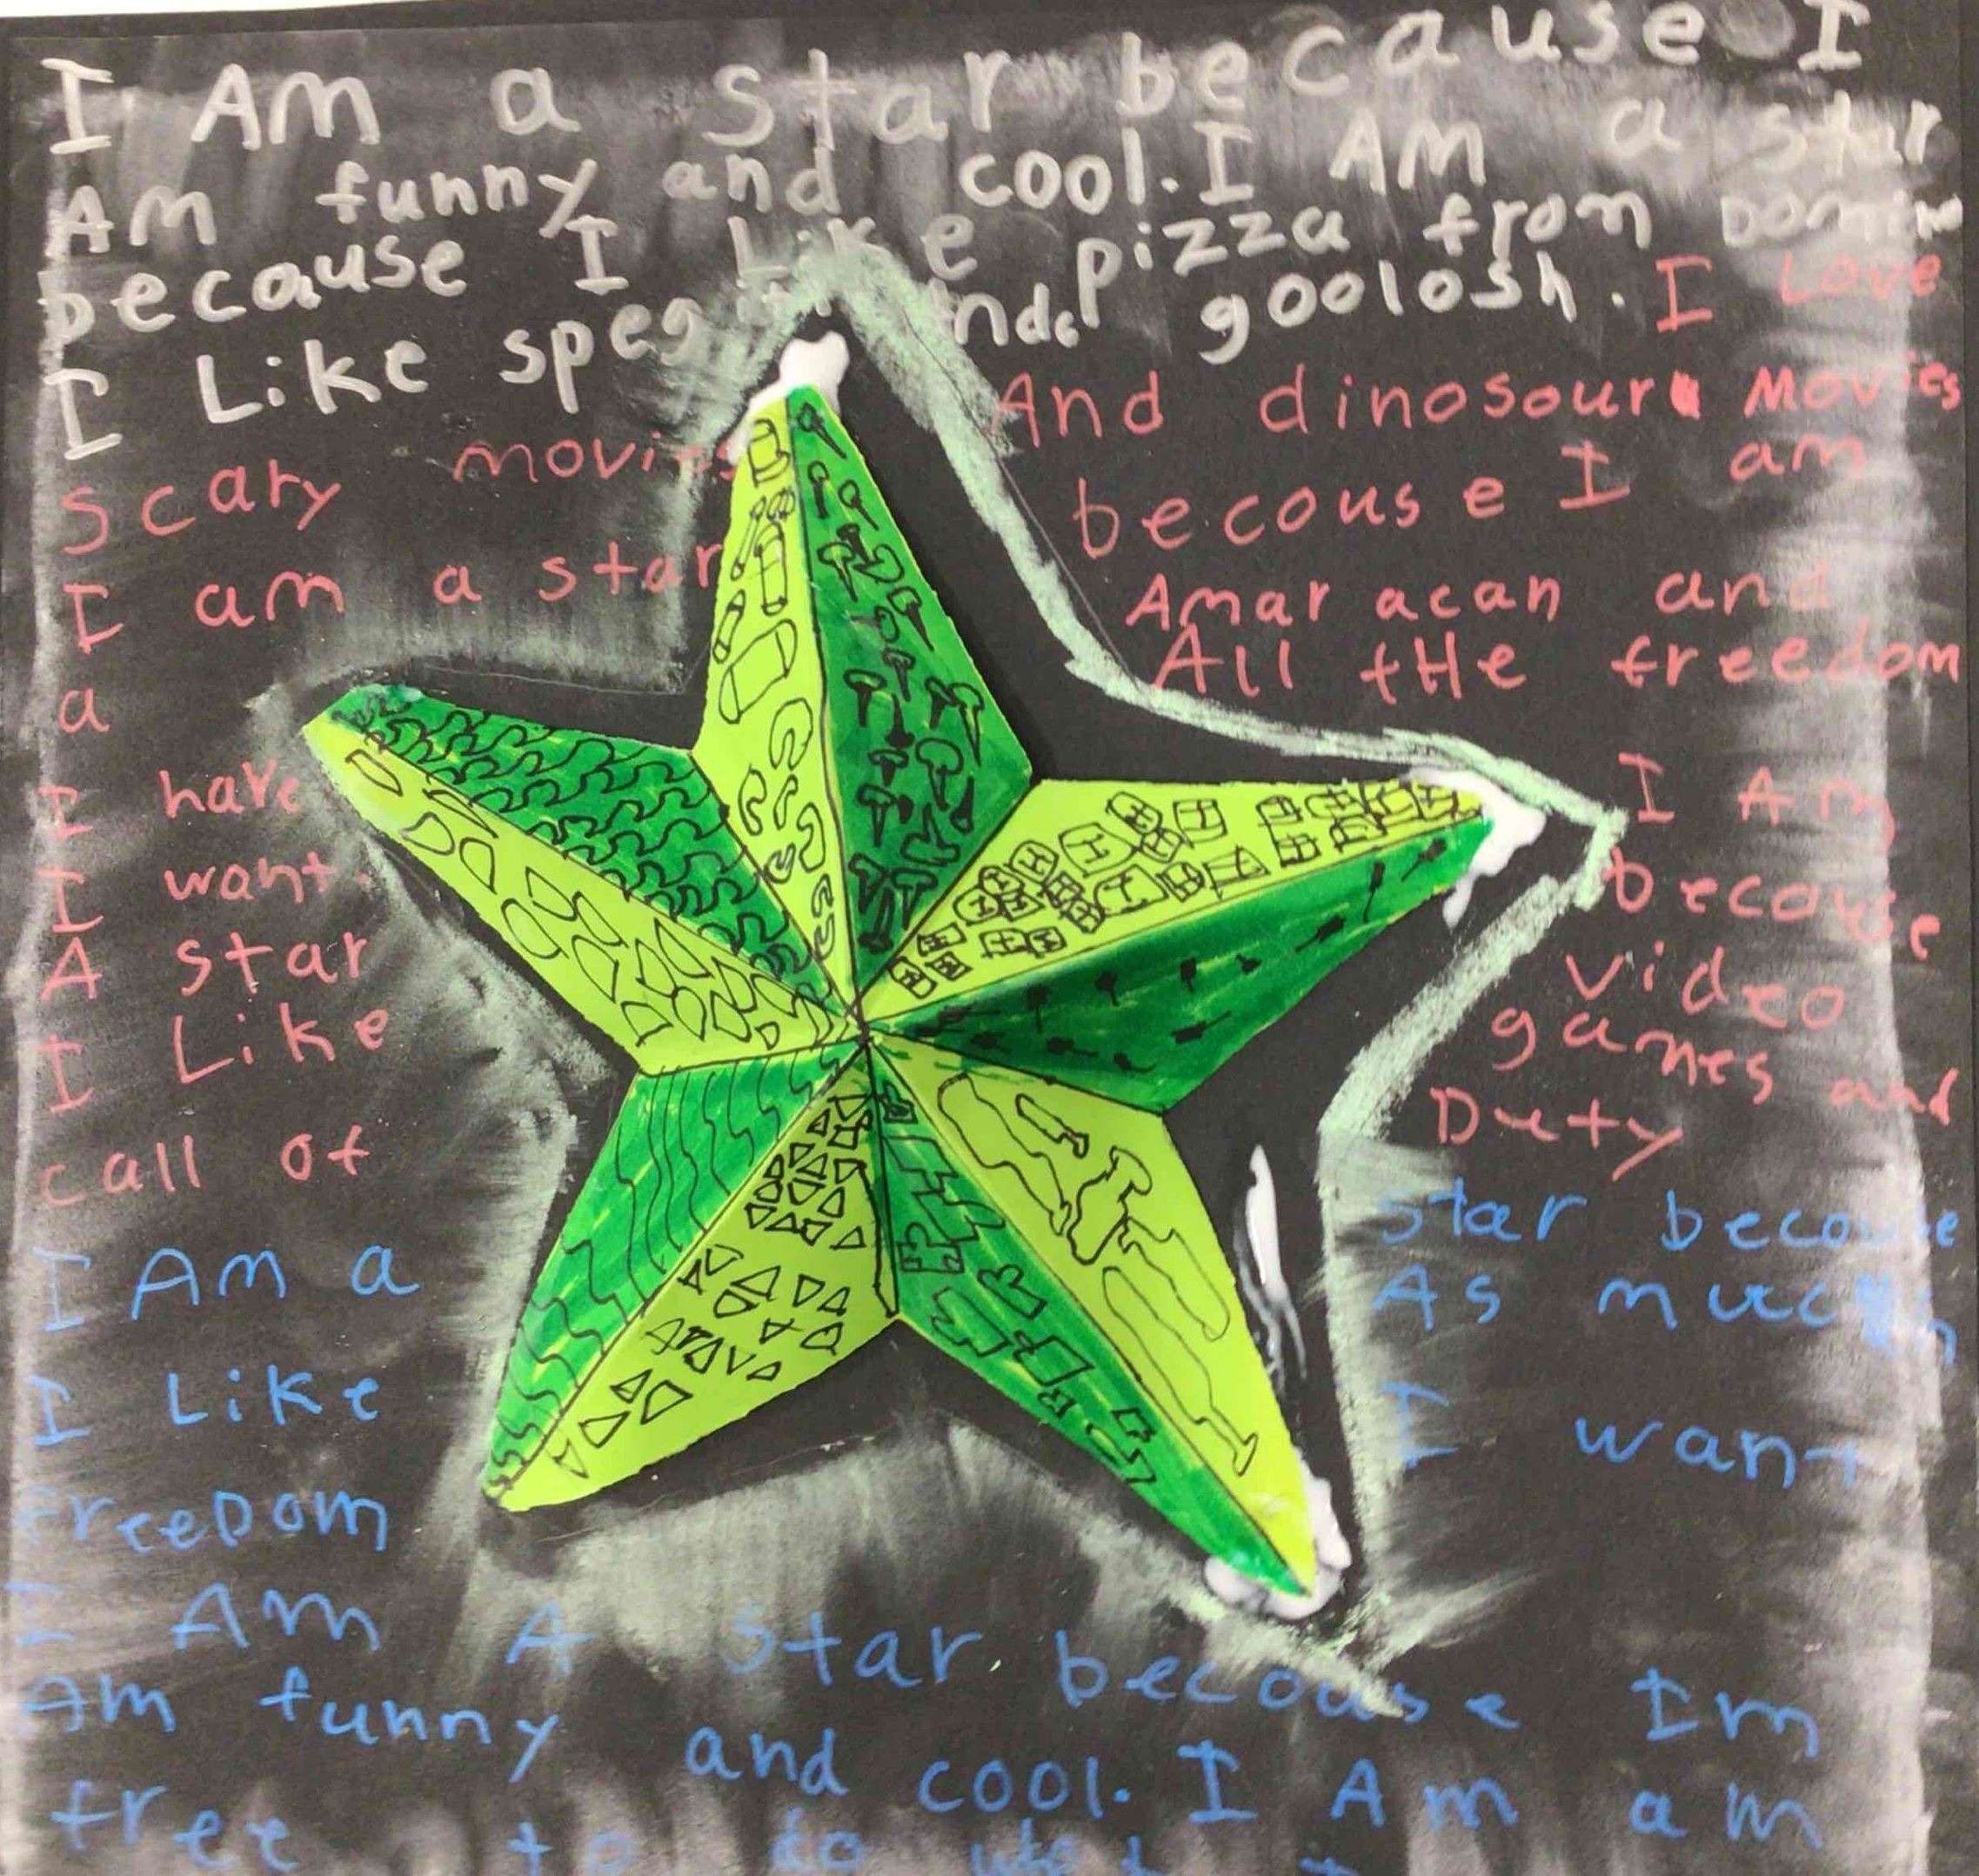 I Am a star because I
Am funny and cool. I AM a star
because I Like pizza from
I Like and goolosh. I Love
scary movies And dinosour movies
I am a star becouse I am
a Amaracan and
I have All tHe freedom
I want. I Am
A star becouse
I Like video games and
call of Duty
I Am a star becouse
I Like As much
freeDom I want
I Am A star becouse Im
Am funny and cool. I Am am
free to do